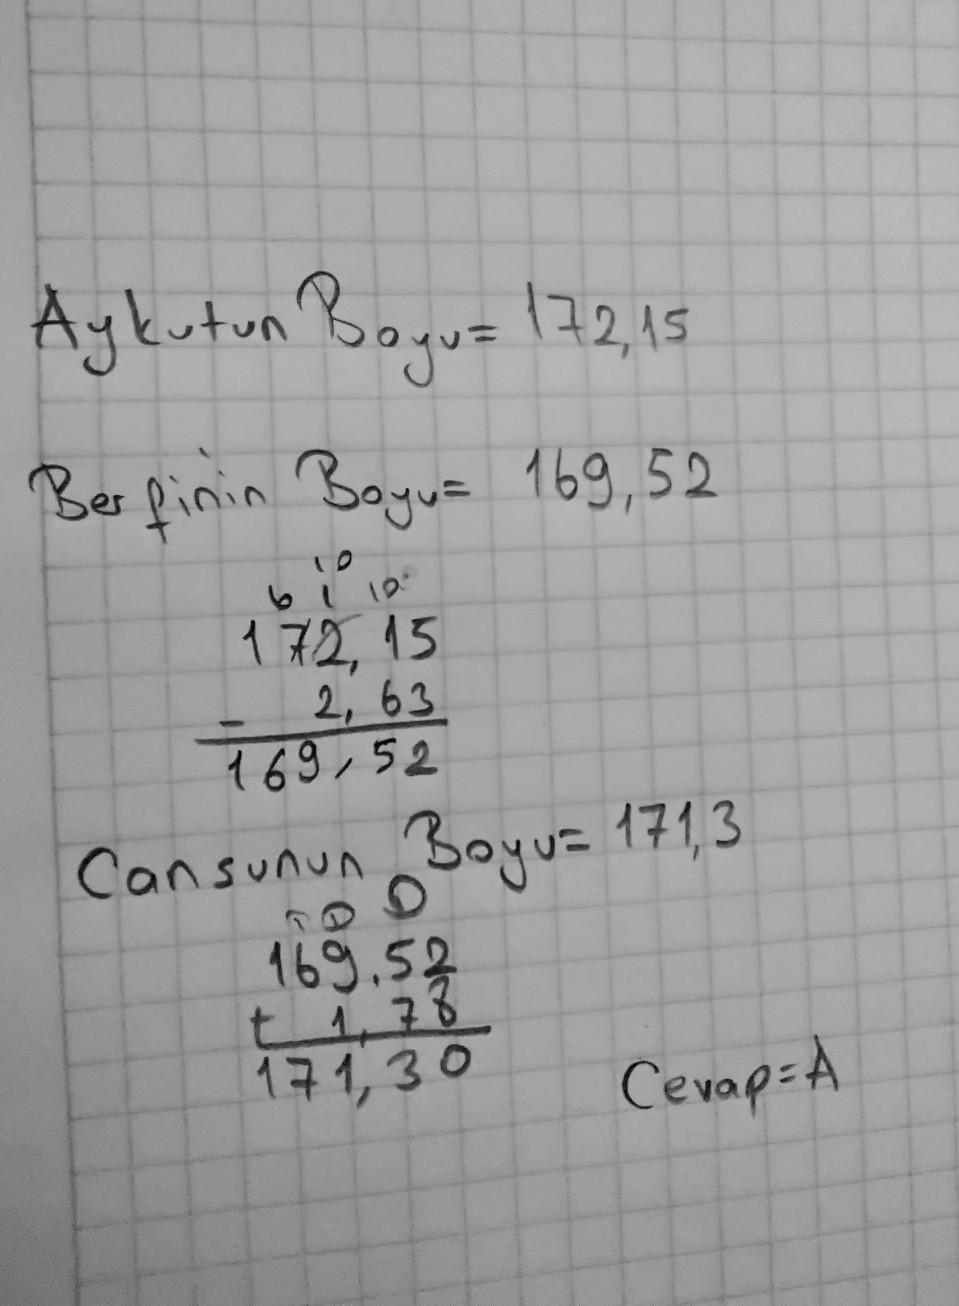 Aykutun Boyu= 172,15
Berfinin Boyu= 169,52
10
6 1 10
172,15
- 2,63
169,52
Cansunun Boyu= 171,3
169.52
+ 1,78
171,30
Cevap=A